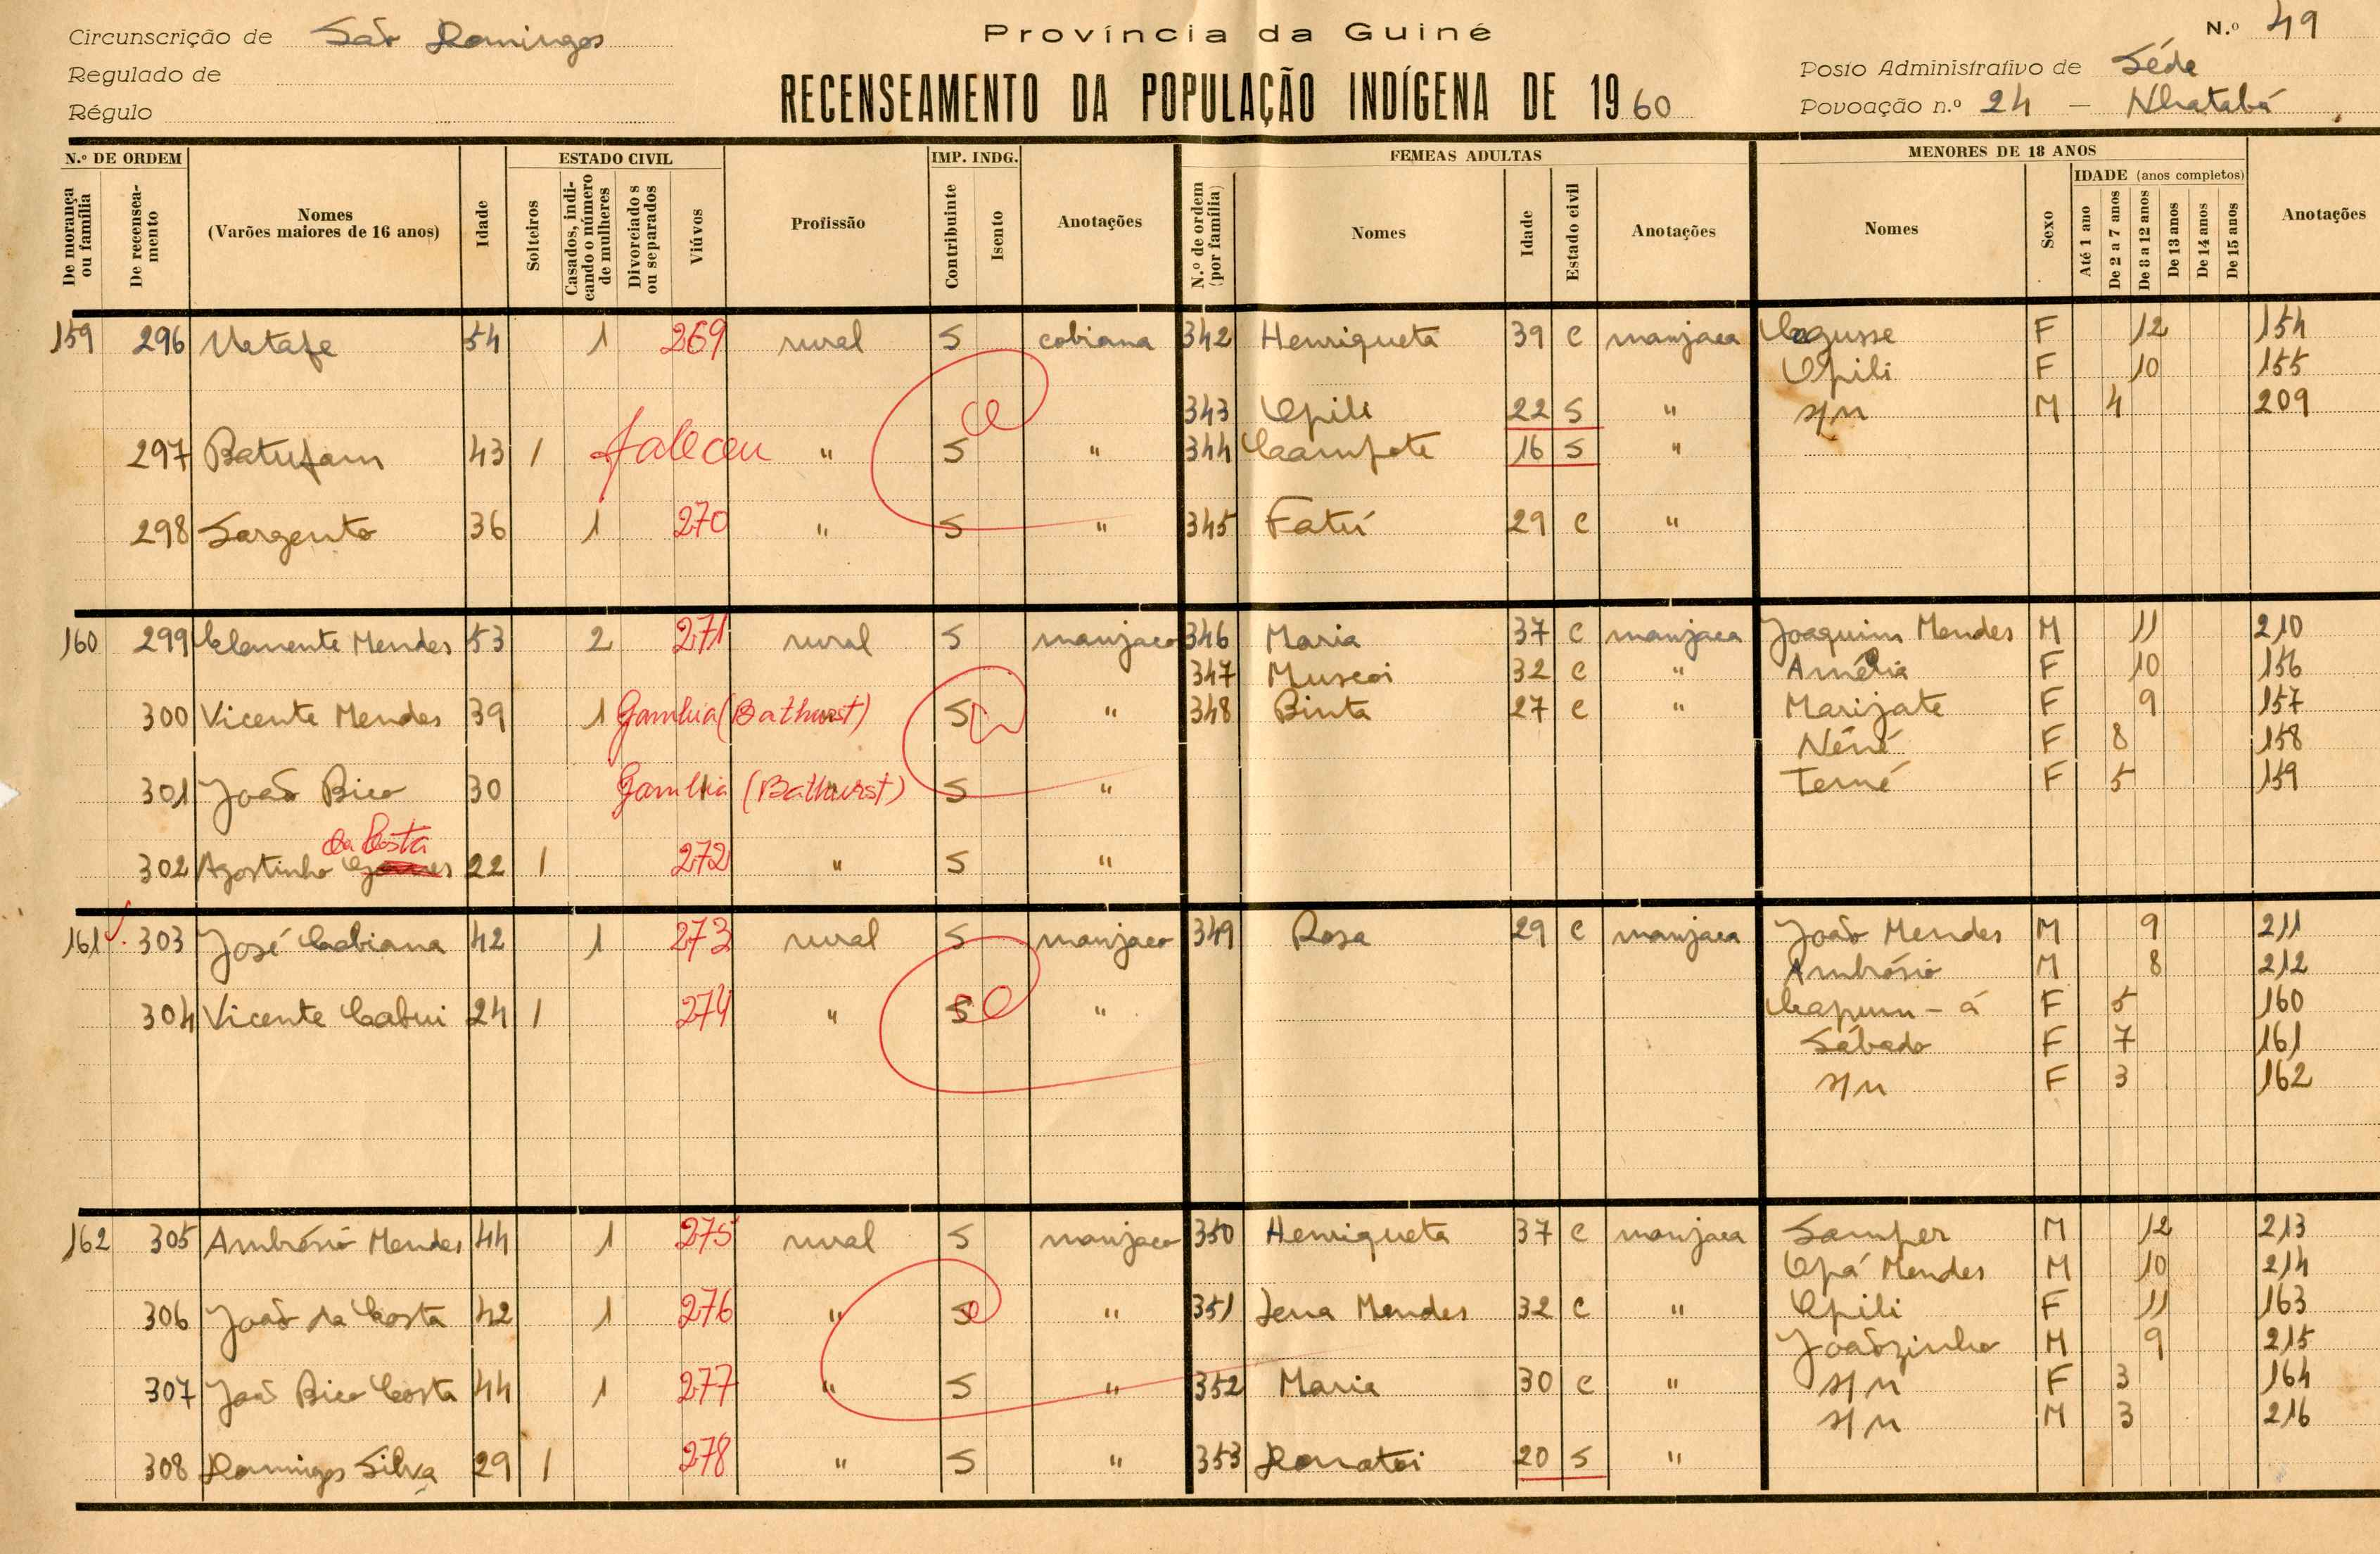 Circunscrição de São Domingos
Regulado de
Régulo
Província da Guiné
RECENSEAMENTO DA POPULAÇÃO INDÍGENA DE 1960
N.º 49
Posto Administrativo de Séde
Povoação n.º 24 — Nhatabá
N.º DE ORDEM ESTADO CIVIL IMP. INDG. FEMEAS ADULTAS MENORES DE 18 ANOS
De morança ou família De recenseamento Nomes (Varões maiores de 16 anos) Idade Solteiros Casados, indicando o número de mulheres Divorciados ou separados Viúvos Profissão Contribuinte Isento Anotações N.º de ordem (por família) Nomes Idade Estado civil Anotações Nomes Sexo IDADE (anos completos) Até 1 ano De 2 a 7 anos De 8 a 12 anos De 13 anos De 14 anos De 15 anos Anotações
159 296 54 1 269 rural S cobiana 342 Henriqueta 39 c manjaca F 12 154
Upili F 10 155
343 Upili 22 S " s/n M 4 209
297 Batufam 43 1 faleceu " S " 344 Campote 16 S "
298 Sargento 36 1 270 " S " 345 Fatú 29 c "
160 299 Clemente Mendes 53 2 271 rural S manjaco 346 Maria 37 c manjaca Joaquim Mendes M 11 210
347 Muscoi 32 c " Amélia F 10 156
300 Vicente Mendes 39 1 Gambia (Bathurst) S " 348 Binta 27 c " Marijate F 9 157
Néné F 8 158
301 João Bico 30 1 Gambia (Bathurst) " S " Terné F 5 159
da Costa
302 Agostinho Gomes 22 1 272 " S "
161 303 José Cabiana 42 1 273 rural S manjaco 349 Rosa 29 c manjaca João Mendes M 9 211
Ambrósio M 8 212
304 Vicente Cabui 24 1 274 " S " Capum - á F 5 160
Sábado F 7 161
s/n F 3 162
162 305 Ambrósio Mendes 44 1 275 rural S manjaco 350 Henriqueta 37 c manjaca Samper M 12 213
Upá Mendes M 10 214
306 João da Costa 42 1 276 " S " 351 Lena Mendes 32 c " Upili F 11 163
Joãozinho M 9 215
307 João Bico Costa 44 1 277 " S " 352 Maria 30 c " s/n F 3 164
s/n M 3 216
308 Domingos Silva 29 1 278 " S " 353 Donatoi 20 S "